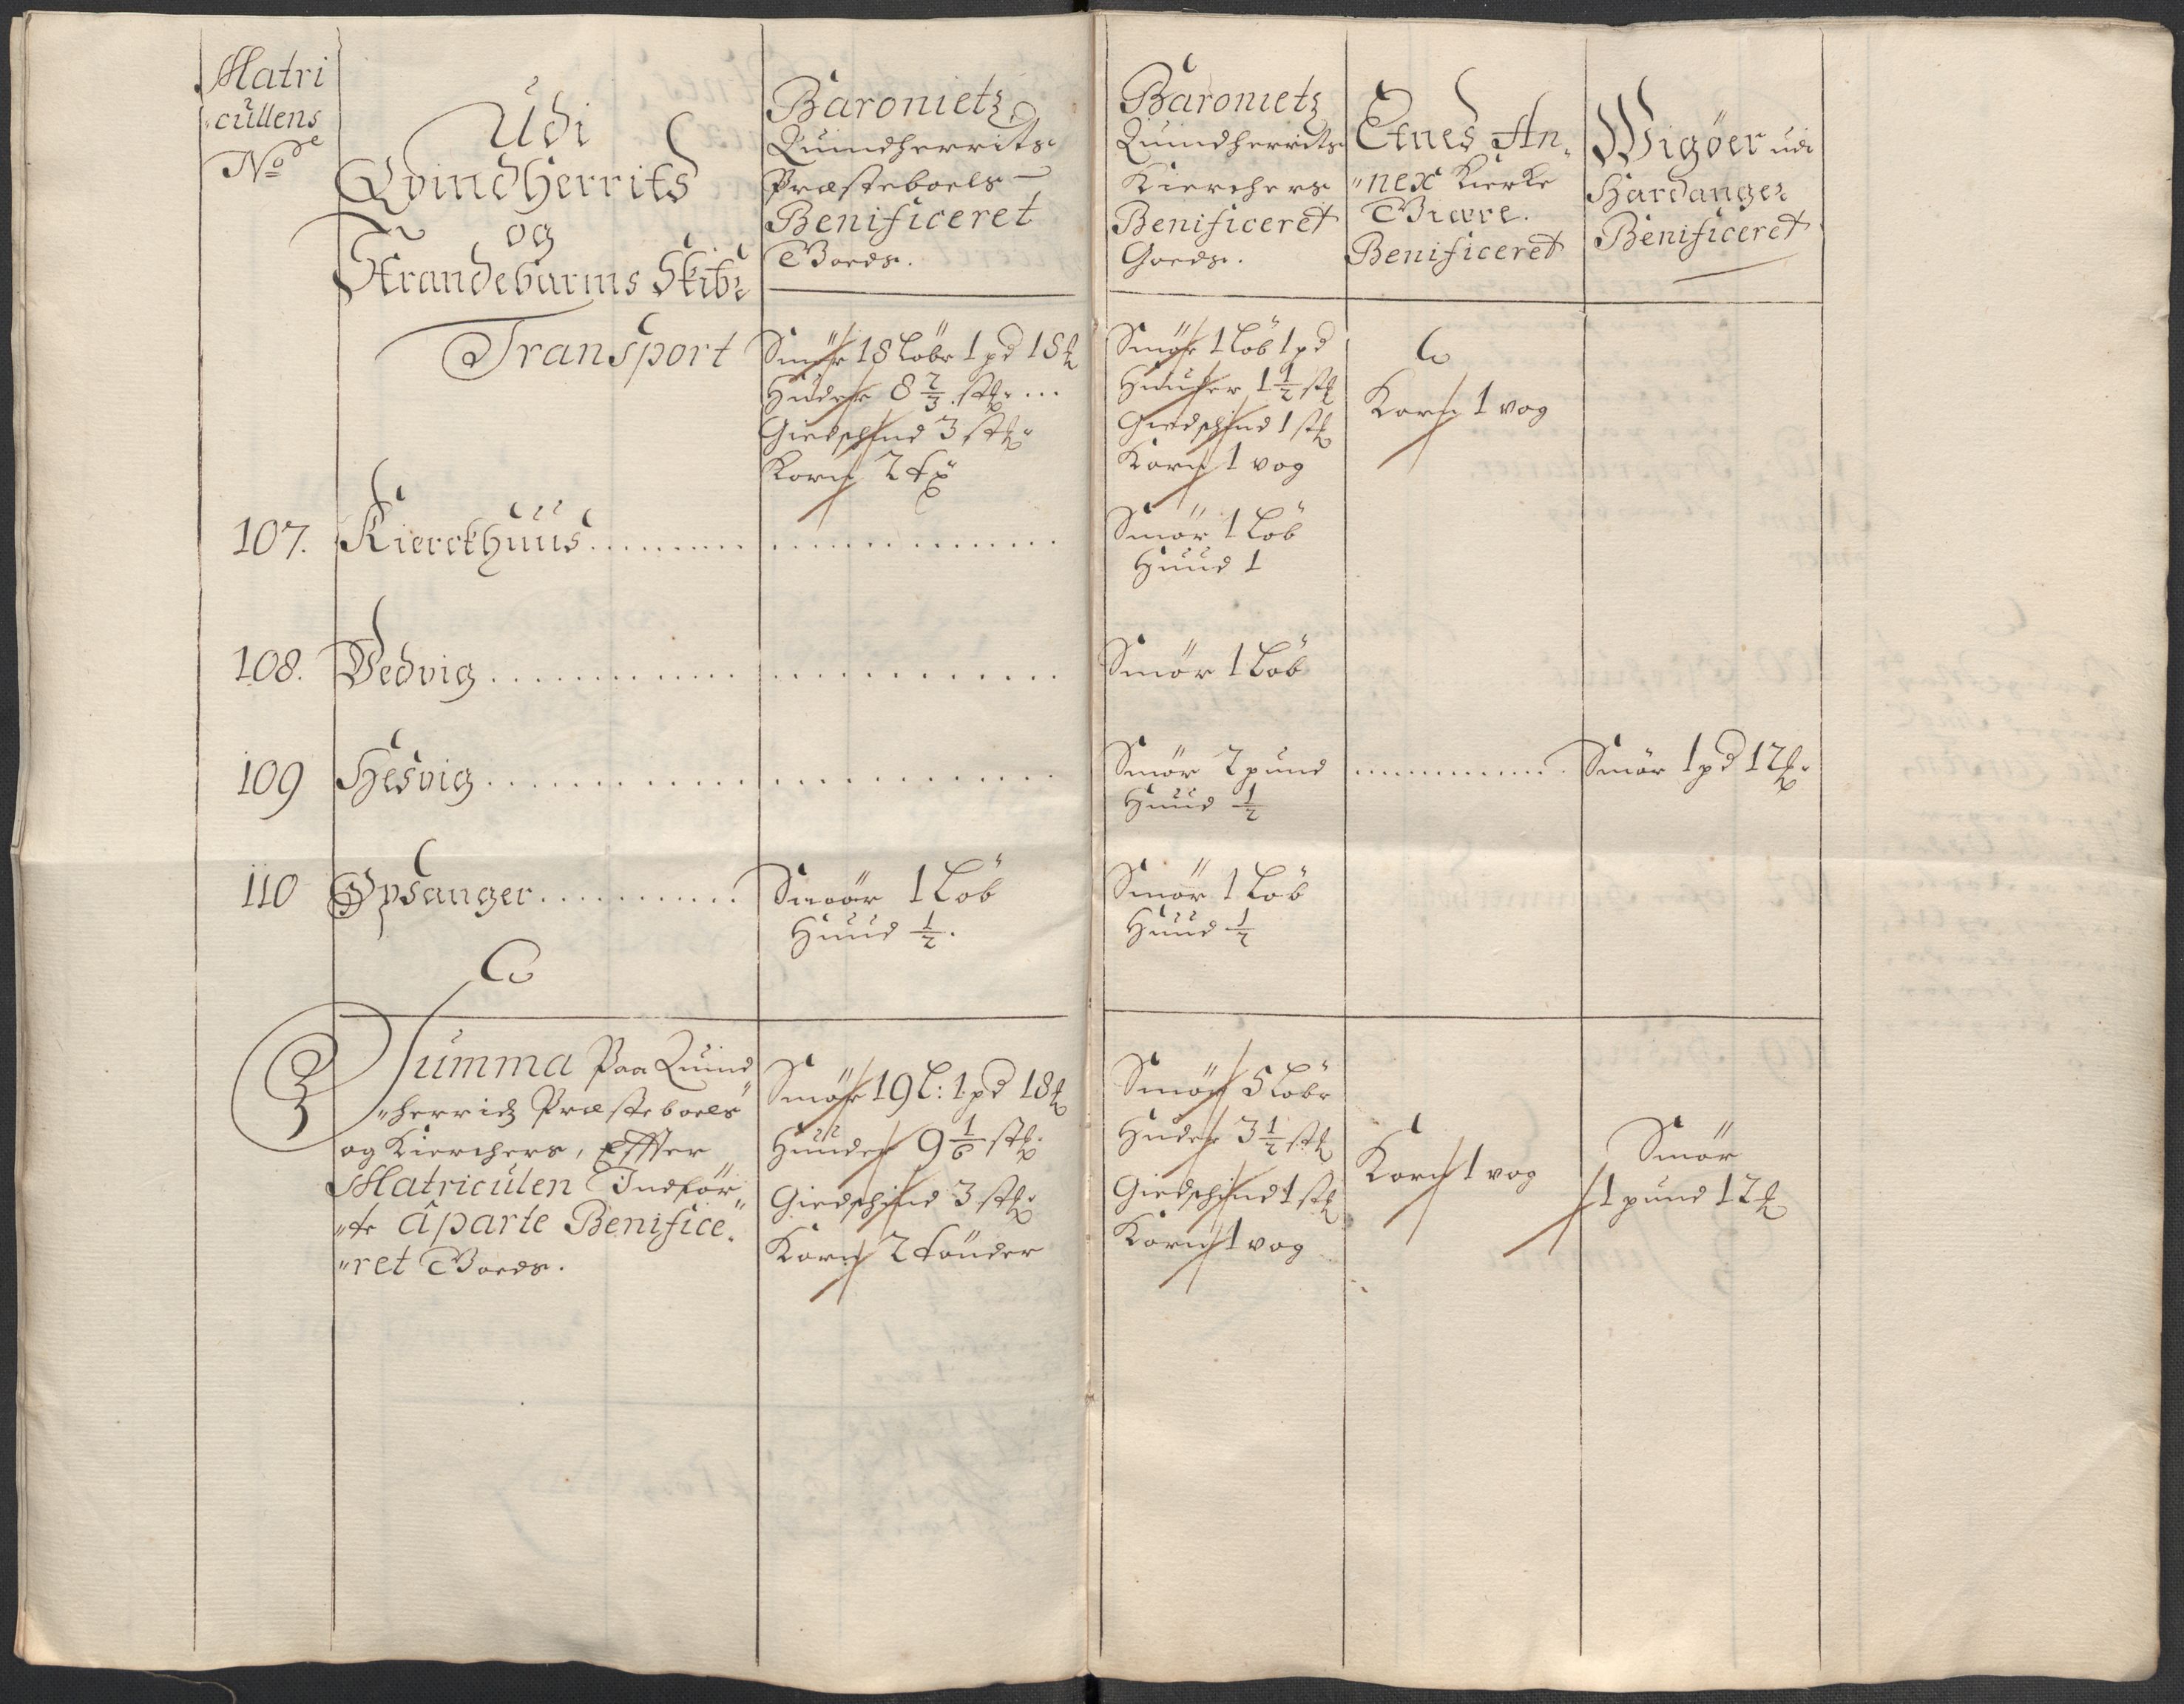 Matri
"cullens
No
Udi
Qvindherrits
og
Strandebarms Skibr
Baronietz
Quindherrits
Præsteboels
Benificeret
Goeds.
Baronietz
Quindherrits
Kierchers
Benificeret
Goeds.
Etnes An,
"nex Kierke
Gierre.
Benificeret
Wigøer udi
Hardanger
Benificeret
Transport
Smör 18 Löbr 1 pd 18 ℔
Huder 8 2/3 stk. ...
Giedschind 3 stk.
Korn 2 tr
Smör 1 Löb 1 pd
Huuder 1 1/2 stk
Giedschind 1 stk
Korn 1 vog
Korn 1 vog
107. Kierckhuus
Smör 1 Löb
Huud 1
108. Vedvig
Smör 1 Löb
109 Hesvig
Smör 2 pund
Huud 1/2
Smör 1 pd 12 ℔.
110 Opsanger
Smöör 1 Löb
Huud 1/2.
Smör 1 Löb
Huud 1/2
Summa Paa Quind
"herridz Præsteboels
og Kierchers, Effter
Matriculen Indför,,
"te aparte Benifice,,
"ret Goeds.
Smör 19 L: 1 pd 18 ℔
Huuder 9 1/6 stk.
Giedschind 3 stk.
Korn 2 tönder
Smör 5 Löbr
Huder 3 1/2 stk
Giedschind 1 stk
Korn 1 vog
Korn 1 vog
Smör
1 pund 12 ℔